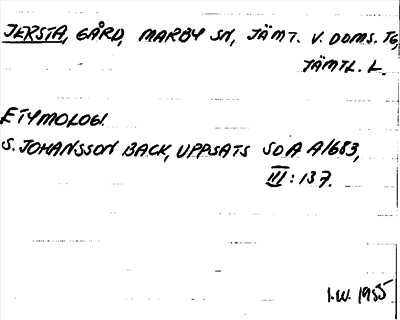 JERSTA, GÅRD, MARBY SN, JÄMT. V. DOMS. TG,
JÄMTL. L.
ETYMOLOGI
S. JOHANSSON BACK, UPPSATS SOA A1683,
III: 137.
I.W. 1955